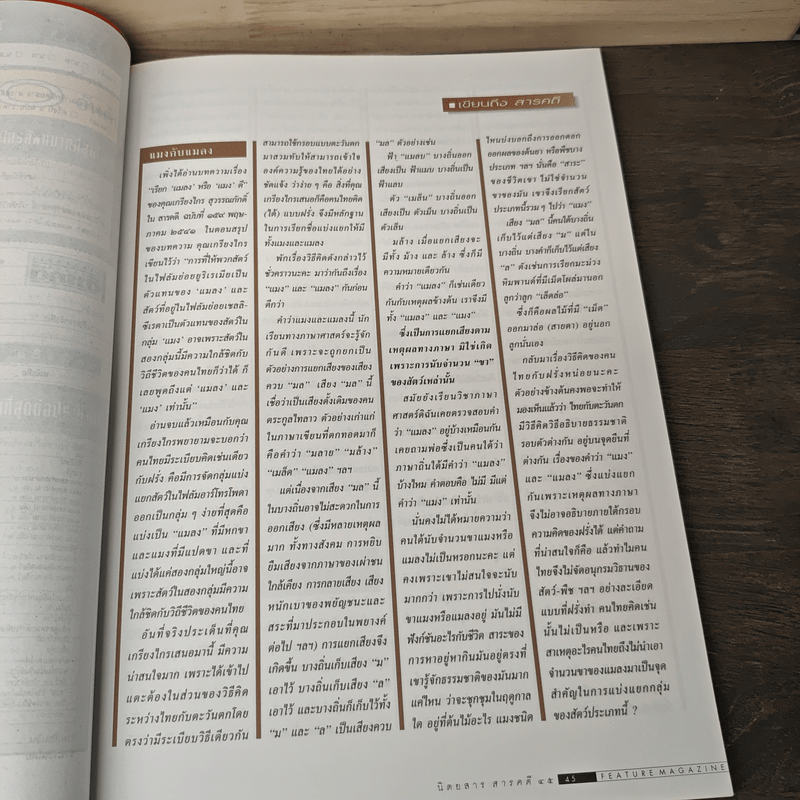 เขียนถึง สารคดี
แมงกับแมลง
เพิ่งได้อ่านบทความเรื่อง
"เรียก 'แมลง' หรือ 'แมง' ดี"
ของคุณเกรียงไกร สุวรรณภักดิ์
ใน สารคดี ฉบับที่ ๑๕๙ พฤษ-
ภาคม ๒๕๔๑ ในตอนสรุป
ของบทความ คุณเกรียงไกร
เขียนไว้ว่า "การที่ให้พวกสัตว์
ในไฟลัมย่อยยูริเรเมียเป็น
ตัวแทนของ 'แมลง' และ
สัตว์ที่อยู่ในไฟลัมย่อยเชลลิ-
ซีเรตาเป็นตัวแทนของสัตว์ใน
กลุ่ม 'แมง' อาจเพราะสัตว์ใน
สองกลุ่มนี้มีความใกล้ชิดกับ
วิถีชีวิตของคนไทยก็ว่าได้ ก็
เลยพูดถึงแต่ 'แมลง' และ
'แมง' เท่านั้น"
อ่านจบแล้วเหมือนกับคุณ
เกรียงไกรพยายามจะบอกว่า
คนไทยมีระเบียบคิดเช่นเดียว
กับฝรั่ง คือมีการจัดกลุ่มแบ่ง
แยกสัตว์ในไฟลัมอาร์โทรโพดา
ออกเป็นกลุ่ม ๆ ง่ายที่สุดคือ
แบ่งเป็น "แมลง" ที่มีหกขา
และแมงที่มีแปดขา และที่
แบ่งได้แค่สองกลุ่มใหญ่นี้อาจ
เพราะสัตว์ในสองกลุ่มมีความ
ใกล้ชิดกับวิถีชีวิตของคนไทย
อันที่จริงประเด็นที่คุณ
เกรียงไกรเสนอมานี้ มีความ
น่าสนใจมาก เพราะได้เข้าไป
แตะต้องในส่วนของวิธีคิด
ระหว่างไทยกับตะวันตกโดย
ตรงว่ามีระเบียบวิธีเดียวกัน
สามารถใช้กรอบแบบตะวันตก
มาสวมทับให้สามารถเข้าใจ
องค์ความรู้ของไทยได้อย่าง
ชัดแจ้ง ว่าง่าย ๆ คือ สิ่งที่คุณ
เกรียงไกรเสนอก็คือคนไทยคิด
(ได้) แบบฝรั่ง จึงมีหลักฐาน
ในการเรียกชื่อแบ่งแยกให้มี
ทั้งแมงและแมลง
พักเรื่องวิธีคิดดังกล่าวไว้
ชั่วคราวนะคะ มาว่ากันถึงเรื่อง
"แมง" และ "แมลง" กันก่อน
ดีกว่า
คำว่าแมงและแมลงนี้ นัก
เรียนทางภาษาศาสตร์จะรู้จัก
กันดี เพราะจะถูกยกเป็น
ตัวอย่างการแยกเสียงของเสียง
ควบ "มล" เสียง "มล" นี้
เชื่อว่าเป็นเสียงดั้งเดิมของคน
ตระกูลไทลาว ตัวอย่างเก่าแก่
ในภาษาเขียนที่ตกทอดมาก็
คือคำว่า "มลาย" "มล้าง"
"เมล็ด" "แมลง" ฯลฯ
แต่เนื่องจากเสียง "มล" นี้
ในบางถิ่นอาจไม่สะดวกในการ
ออกเสียง (ซึ่งมีหลายเหตุผล
มาก ทั้งทางสังคม การหยิบ
ยืมเสียงจากภาษาของเผ่าชน
ใกล้เคียง การกลายเสียง เสียง
หนักเบาของพยัญชนะและ
สระที่มาประกอบในพยางค์
ต่อไป ฯลฯ) การแยกเสียงจึง
เกิดขึ้น บางถิ่นเก็บเสียง "ม"
เอาไว้ บางถิ่นเก็บเสียง "ล"
เอาไว้ และบางถิ่นก็เก็บไว้ทั้ง
"ม" และ "ล" เป็นเสียงควบ
"มล" ตัวอย่างเช่น
ฟ้า "แมลบ" บางถิ่นออก
เสียงเป็น ฟ้าแมบ บางถิ่นเป็น
ฟ้าแลบ
ตัว "เมล็น" บางถิ่นออก
เสียงเป็น ตัวเม็น บางถิ่นเป็น
ตัวเล็น
มล้าง เมื่อแยกเสียงจะ
มีทั้ง ม้าง และ ล้าง ซึ่งก็มี
ความหมายเดียวกัน
คำว่า "แมลง" ก็เช่นเดียว
กันกับเหตุผลข้างต้น เราจึงมี
ทั้ง "แมลง" และ "แมง"
ซึ่งเป็นการแยกเสียงตาม
เหตุผลทางภาษา มิใช่เกิด
เพราะการนับจำนวน "ขา"
ของสัตว์เหล่านั้น
สมัยยังเรียนวิชาภาษา
ศาสตร์ดิฉันเคยตรวจสอบคำ
ว่า "แมลง" อยู่บ้างเหมือนกัน
เคยถามพ่อซึ่งเป็นคนใต้ว่า
ภาษาถิ่นใต้มีคำว่า "แมลง"
บ้างไหม คำตอบคือ ไม่มี มีแต่
คำว่า "แมง" เท่านั้น
นั่นคงไม่ได้หมายความว่า
คนใต้นับจำนวนขาแมงหรือ
แมลงไม่เป็นหรอกนะคะ แต่
คงเพราะเขาไม่สนใจจะนับ
มากกว่า เพราะการไปนั่งนับ
ขาแมงหรือแมลงอยู่ มันไม่มี
ฟังก์ชันอะไรกับชีวิต สาระของ
การหาอยู่หากินมันอยู่ตรงที่
เขารู้จักธรรมชาติของมันมาก
แค่ไหน ว่าจะชุกชุมในฤดูกาล
ใด อยู่ที่ต้นไม้อะไร แมงชนิด
ไหนบ่งบอกถึงการออกดอก
ออกผลของต้นยา หรือพืชบาง
ประเภท ฯลฯ นั่นคือ "สาระ"
ของชีวิตเขา ไม่ใช่จำนวน
ขาของมัน เขาจึงเรียกสัตว์
ประเภทนี้รวม ๆ ไปว่า "แมง"
เสียง "มล" นี้คนใต้บางถิ่น
เก็บไว้แต่เสียง "ม" แต่ใน
บางถิ่น บางคำก็เก็บไว้แค่เสียง
"ล" ดังเช่นการเรียกมะม่วง
หิมพานต์ที่มีเม็ดโผล่มานอก
ลูกว่าลูก "เล็ดล่อ"
ซึ่งก็คือผลไม้ที่มี "เม็ด"
ออกมาล่อ (สายตา) อยู่นอก
ลูกนั่นเอง
กลับมาเรื่องวิธีคิดของคน
ไทยกับฝรั่งหน่อยนะคะ
ตัวอย่างข้างต้นคงพอจะทำให้
มองเห็นแล้วว่า ไทยกับตะวันตก
มีวิธีคิดวิธีอธิบายธรรมชาติ
รอบตัวต่างกัน อยู่บนจุดยืนที่
ต่างกัน เรื่องของคำว่า "แมง"
และ "แมลง" ซึ่งแบ่งแยก
กันเพราะเหตุผลทางภาษา
จึงไม่อาจอธิบายภายใต้กรอบ
ความคิดของฝรั่งได้ แต่คำถาม
ที่น่าสนใจก็คือ แล้วทำไมคน
ไทยจึงไม่จัดอนุกรมวิธานของ
สัตว์-พืช ฯลฯ อย่างละเอียด
แบบที่ฝรั่งทำ คนไทยคิดเช่น
นั้นไม่เป็นหรือ และเพราะ
สาเหตุอะไรคนไทยถึงไม่นำเอา
จำนวนขาของแมลงมาเป็นจุด
สำคัญในการแบ่งแยกกลุ่ม
ของสัตว์ประเภทนี้ ?
นิตยสาร สารคดี ๔๕ 45 FEATURE MAGAZINE